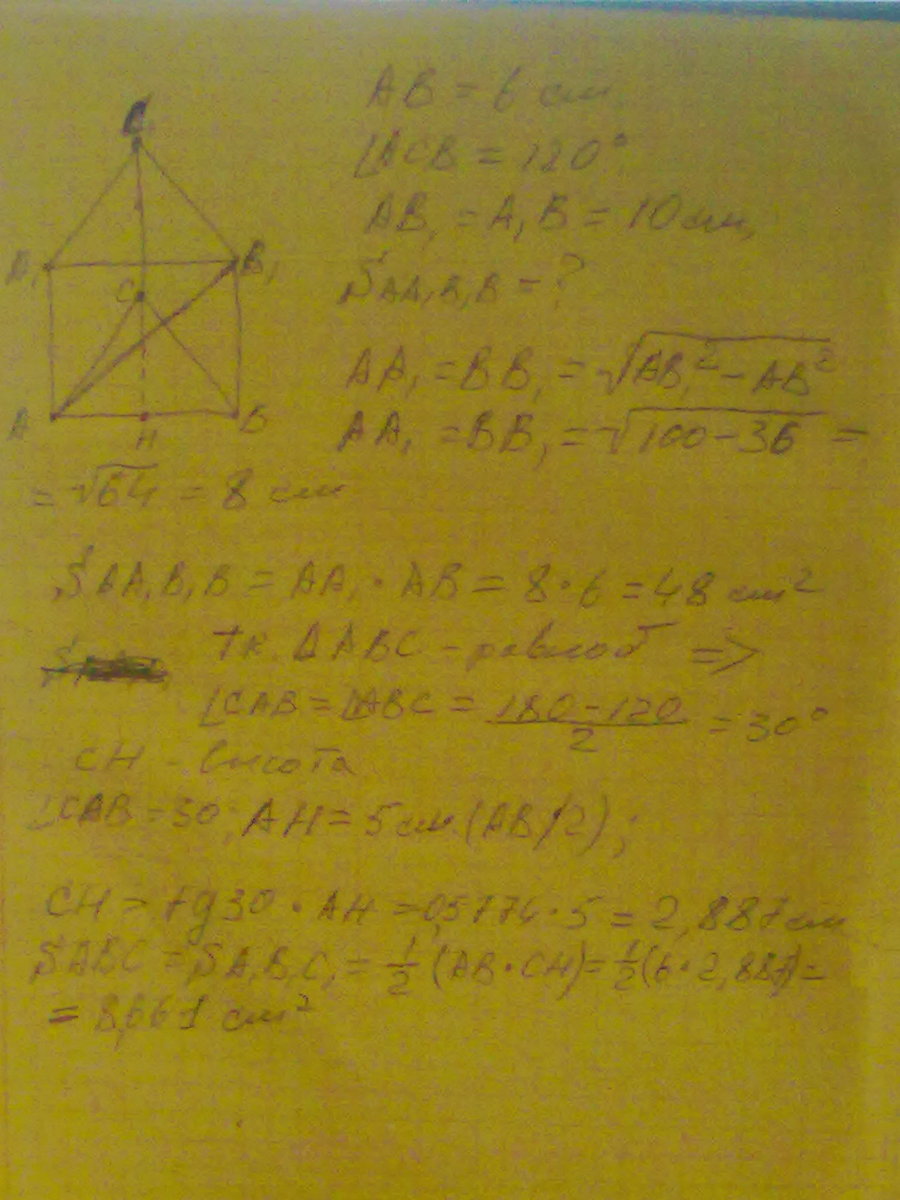 AB = 6 см
∠ACB = 120°
AB₁ = A₁B = 10 см,
SAA₁B₁B = ?
AA₁ = BB₁ = √AB₁² - AB²
AA₁ = BB₁ = √100 - 36 =
= √64 = 8 см
SAA₁B₁B = AA₁ · AB = 8 · 6 = 48 см²
т.к. ΔABC - равноб =>
∠CAB = ∠ABC = 180 - 120 / 2 = 30°
CH - высота
∠CAB = 30; AH = 5 см (AB/2);
CH = tg30 · AH = 0,5774 · 5 = 2,887 см
SABC = SA₁B₁C₁ = 1/2 (AB · CH) = 1/2 (6 · 2,887) =
= 8,661 см²
C₁
A₁
B₁
C
A
H
B